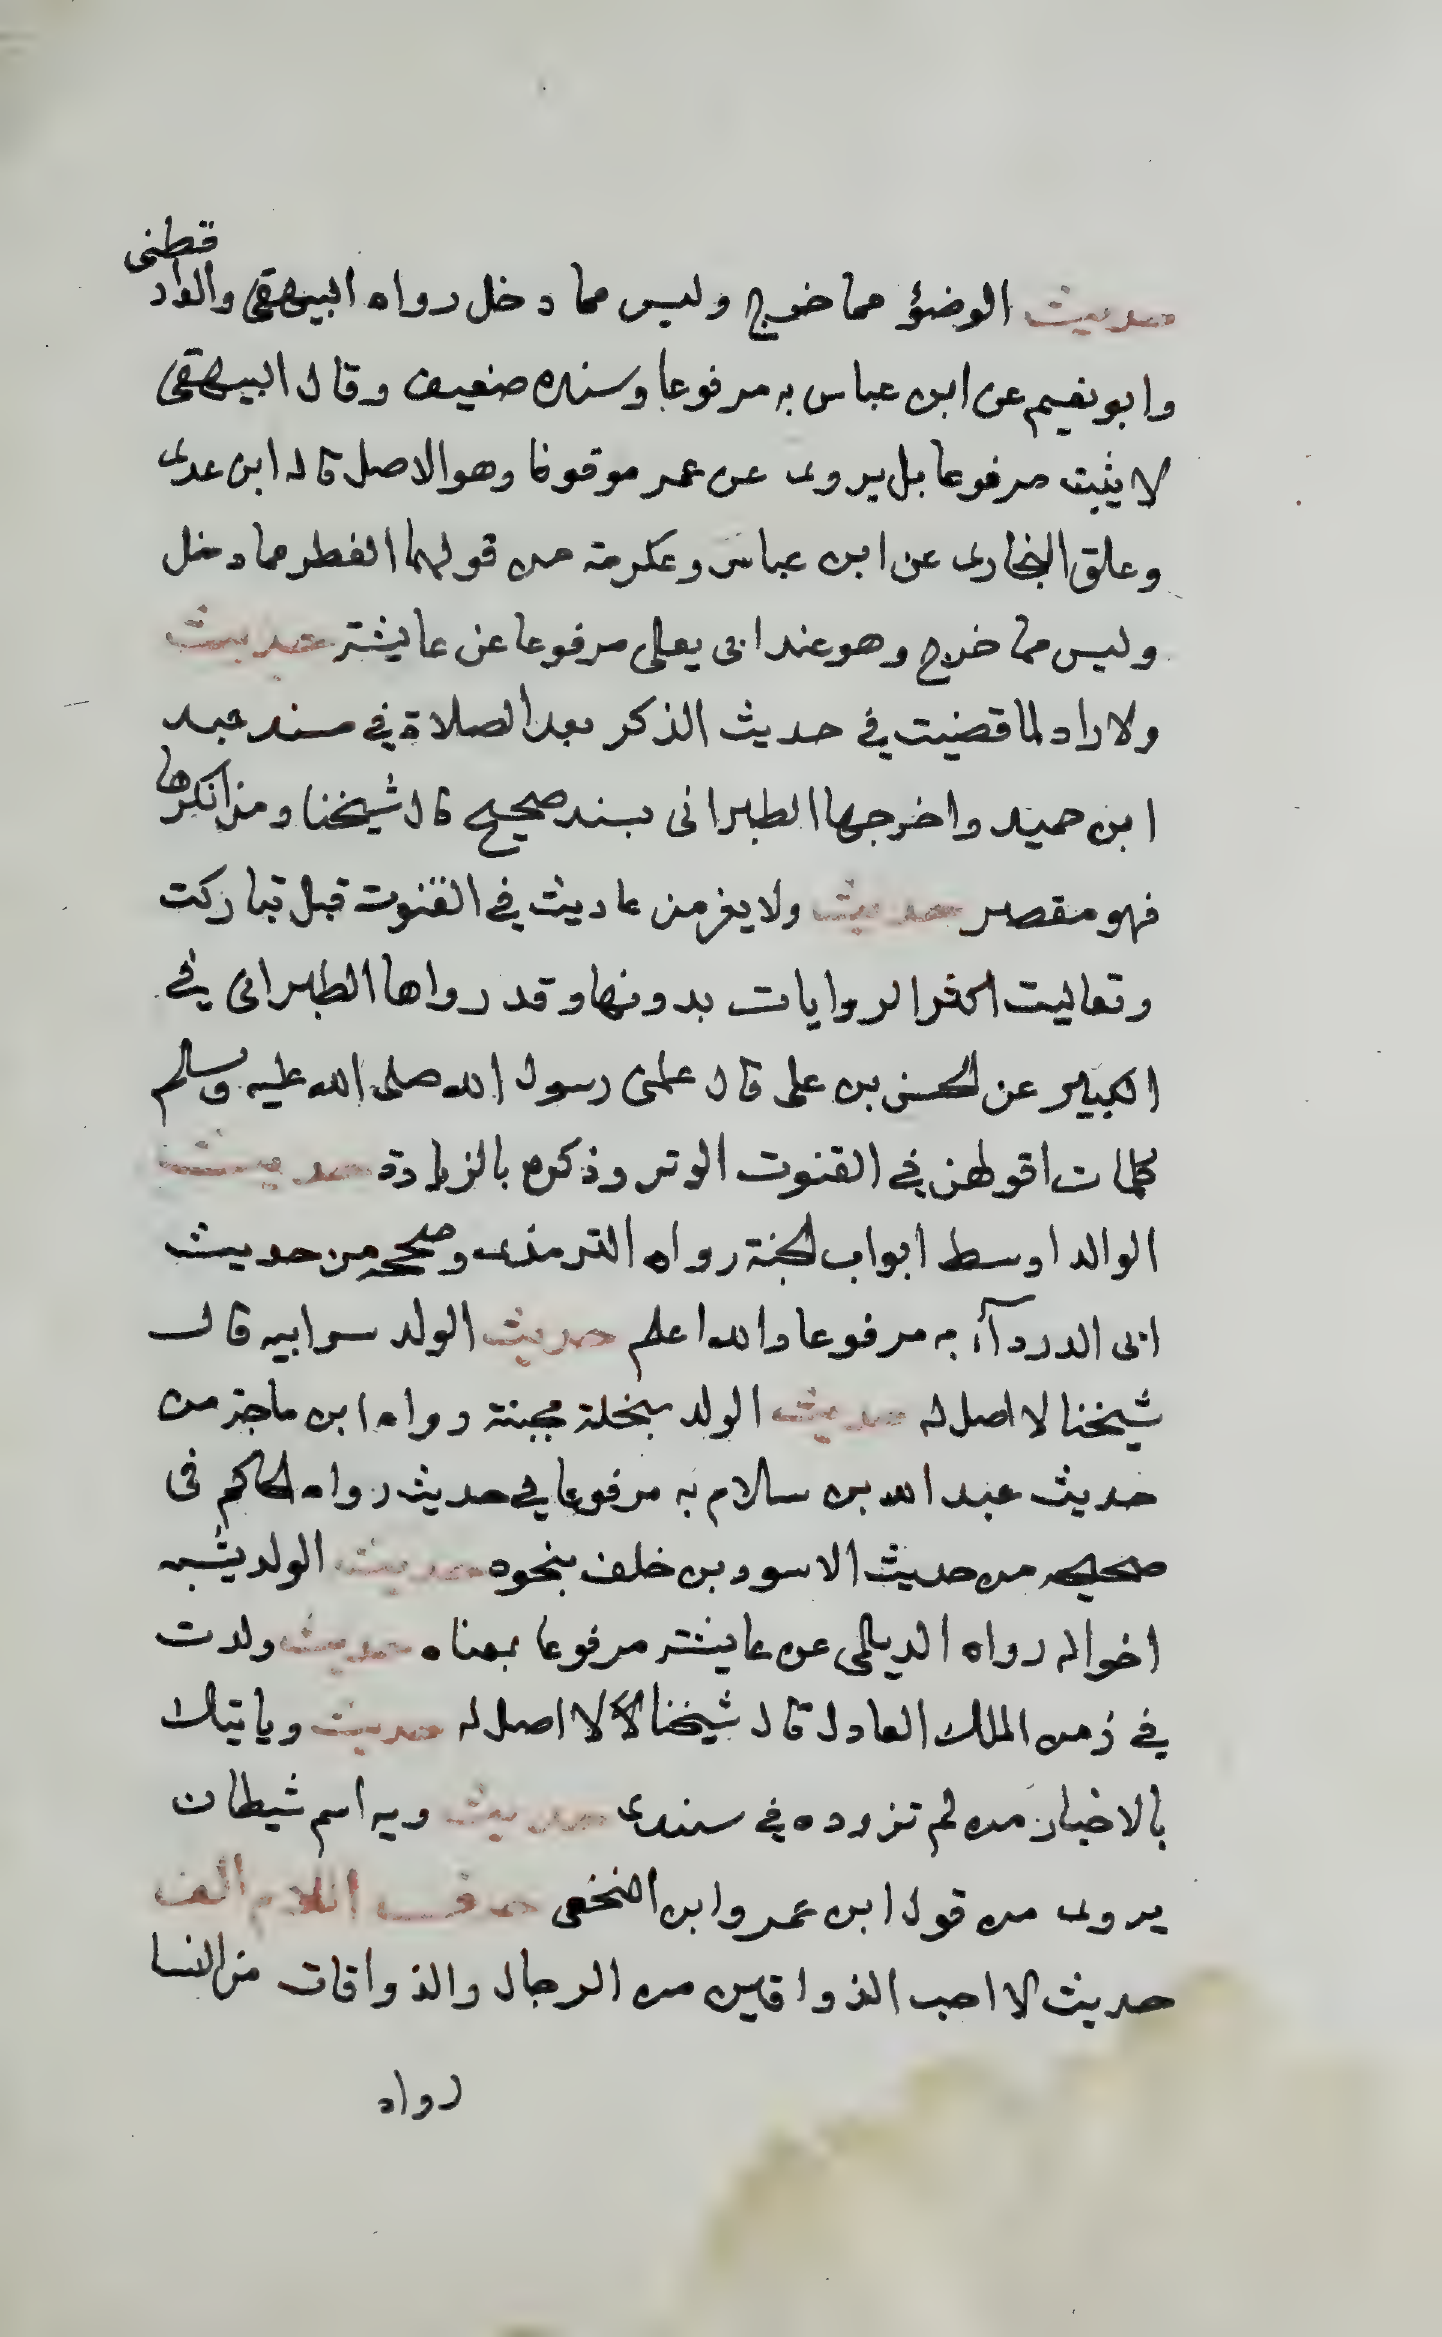 حديث الوضؤ مما خرج وليس مما دخل رواه البيهقي والدار قطنى
وابو نعيم عن ابن عباس به مرفوعا وسنده ضعيف وقال البيهقي
لا يثبت مرفوعا بل يروى عن عمر موقوفا وهو الاصل قاله ابن عدى
وعلق البخارى عن ابن عباس وعكرمة من قولهما الفطر مما دخل
وليس مما خرج وهو عند ابى يعلى مرفوعا عن عايشة حديث
ولا راد لما قضيت في حديث الذكر بعد الصلاة في مسند عبد
ابن حميد واخرجها الطبرانى بسند صحيح قال شيخنا ومن انكرها
فهو مقصر حديث ولا يعز من عاديت في القنوت قبل تباركت
وتعاليت اكثر الروايات بدونها وقد رواها الطبرانى في
الكبير عن الحسن بن على قال علمنى رسول الله صلى الله عليه وسلم
كلمات اقولهن في القنوت الوتر وذكره بالزيادة حديث
الوالد اوسط ابواب الجنة رواه الترمذى وصححه من حديث
ابى الدردآء به مرفوعا والله اعلم حديث الولد سر ابيه قال
شيخنا لا اصل له حديث الولد بخلة مجبنة رواه ابن ماجة من
حديث عبد الله بن سالام به مرفوعا في حديث رواه الحاكم فى
صحيحه من حديث الاسود بن خلف بنحوه حديث الولد يشبه
اخواله رواه الديلمى عن عايشة مرفوعا بمعناه حديث ولدت
في زمن الملك العادل قال شيخنا لا لا اصل له حديث وياتيك
بالاخبار من لم تزوده في سندى حديث ويه اسم شيطان
يروى من قول ابن عمر وابن النخعى حرف اللام الف
حديث لا احب الذواقين من الرجال والذواقات من النسا
رواه